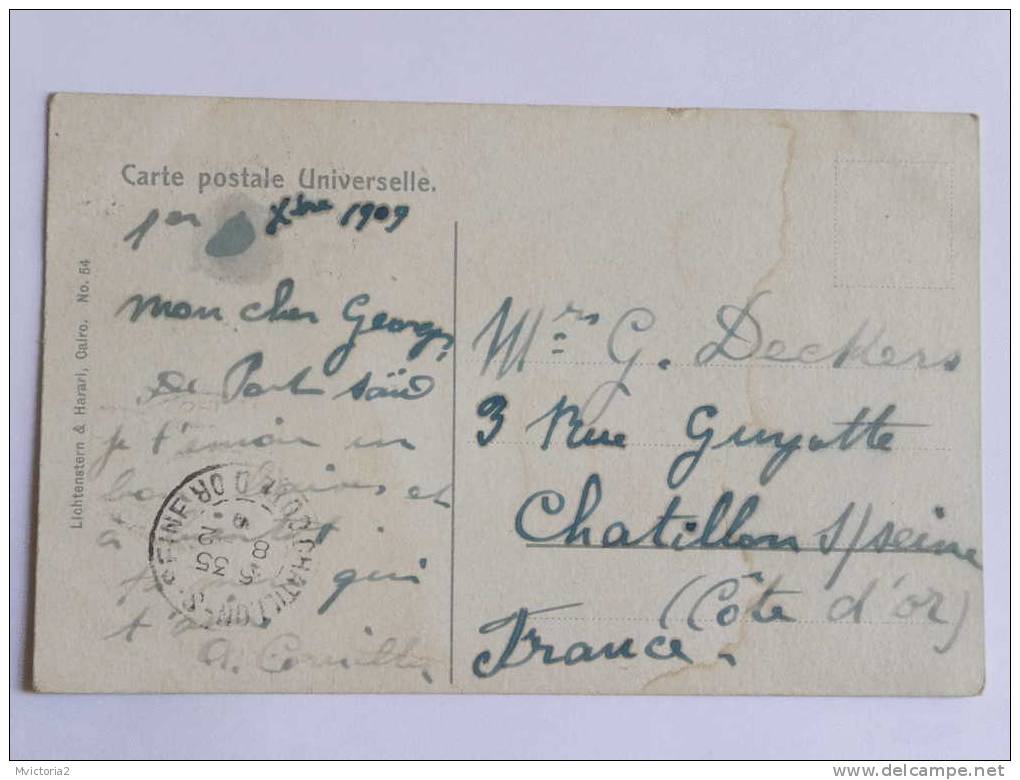 Carte postale Universelle.
1er Xbre 1909
mon cher Georges,
De Port Saïd
je t'envoie un
bon et
à
qui
t'
Lichtenstern & Harari, Cairo. No. 54
Mrs G. Deckers
3 Rue Guyotte
Chatillon s/seine
(Côte d'or)
France.
CHATILLON-S-SEINE COTE D'OR
Mvictoria2
delcampe.net